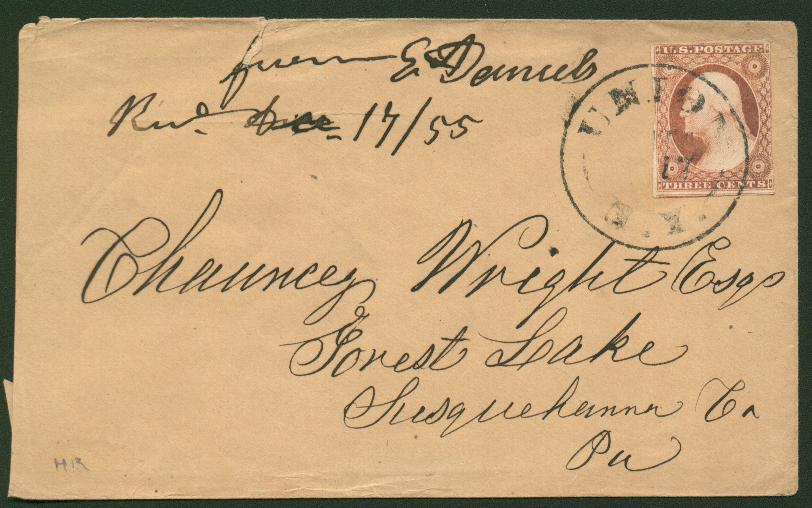 from E Daniels
Recd. Dec 17/55
U.S. POSTAGE
THREE CENTS
UNION
17
Chauncey Wright Esqr
Forest Lake
Susquehanna Co
Pa
HR